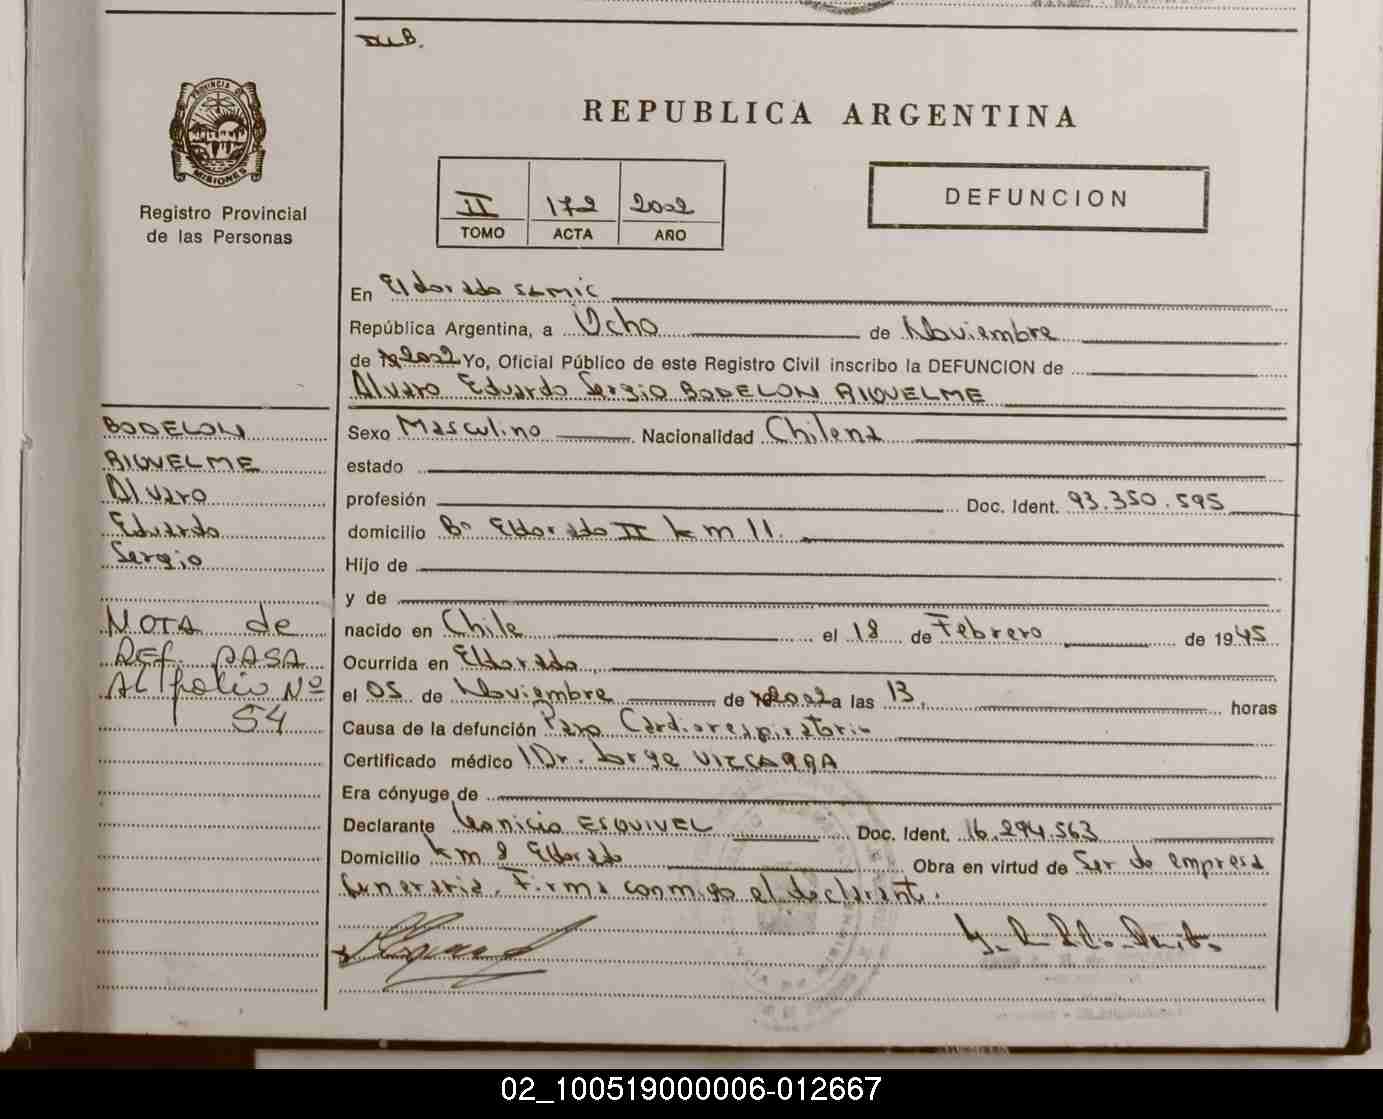 REPUBLICA ARGENTINA
PROVINCIA DE
MISIONES
Registro Provincial
de las Personas
II 172 2002
TOMO ACTA AÑO
DEFUNCION
En Eldorado SAMIC
República Argentina, a Ocho de Noviembre
de 2002 Yo, Oficial Público de este Registro Civil inscribo la DEFUNCION de
Alvaro Eduardo Sergio BODELON RIQUELME
Sexo Masculino Nacionalidad Chilena
estado
profesión Doc. Ident. 93.350.595
domicilio Bº Eldorado II km 11.
Hijo de
y de
nacido en Chile el 18 de Febrero de 1945
Ocurrida en Eldorado,
el 05 de Noviembre de 2002 a las 13, horas
Causa de la defunción Paro Cardiorespiratorio
Certificado médico Dr. Jorge VIZCARRA
Era cónyuge de
Declarante ESQUIVEL Doc. Ident. 16.294.563
Domicilio km 8 Eldorado Obra en virtud de Ser de empresa
funeraria. Firma conmigo el declarante.
BODELON
RIQUELME
Alvaro
Eduardo
Sergio
NOTA de
REF. PASA
AL folio Nº
54
02_100519000006-012667